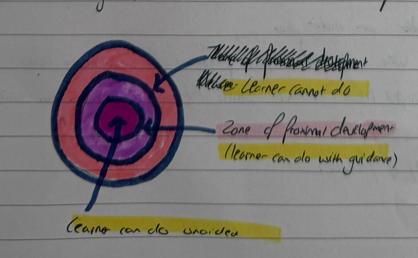 Learner cannot do
Zone of proximal development
(learner can do with guidance)
Learner can do unaided